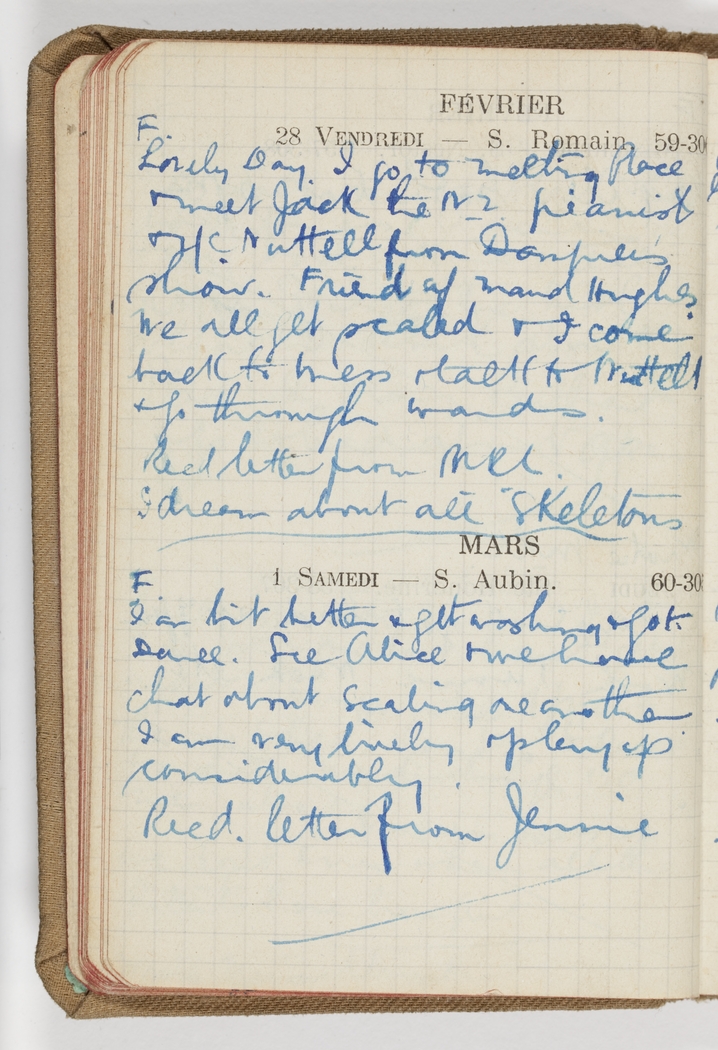 FÉVRIER
F.
28 VENDREDI — S. Romain 59-30
Lovely Day. I go to melting Place
& meet Jack the N.Z. pianist
Nuttell from
show. Friend of Maud Hughes
We all get scaled & I come
back to mess & talk to Nuttell
& go through wards.
Recd letter from
I dream about all "Skeletons
MARS
F
1 SAMEDI — S. Aubin. 60-30
I am bit better & get washing & go to
Dance. See Alice & we have
chat about scaling one another
I am very lively & play up
considerably.
Recd. letter from Jennie